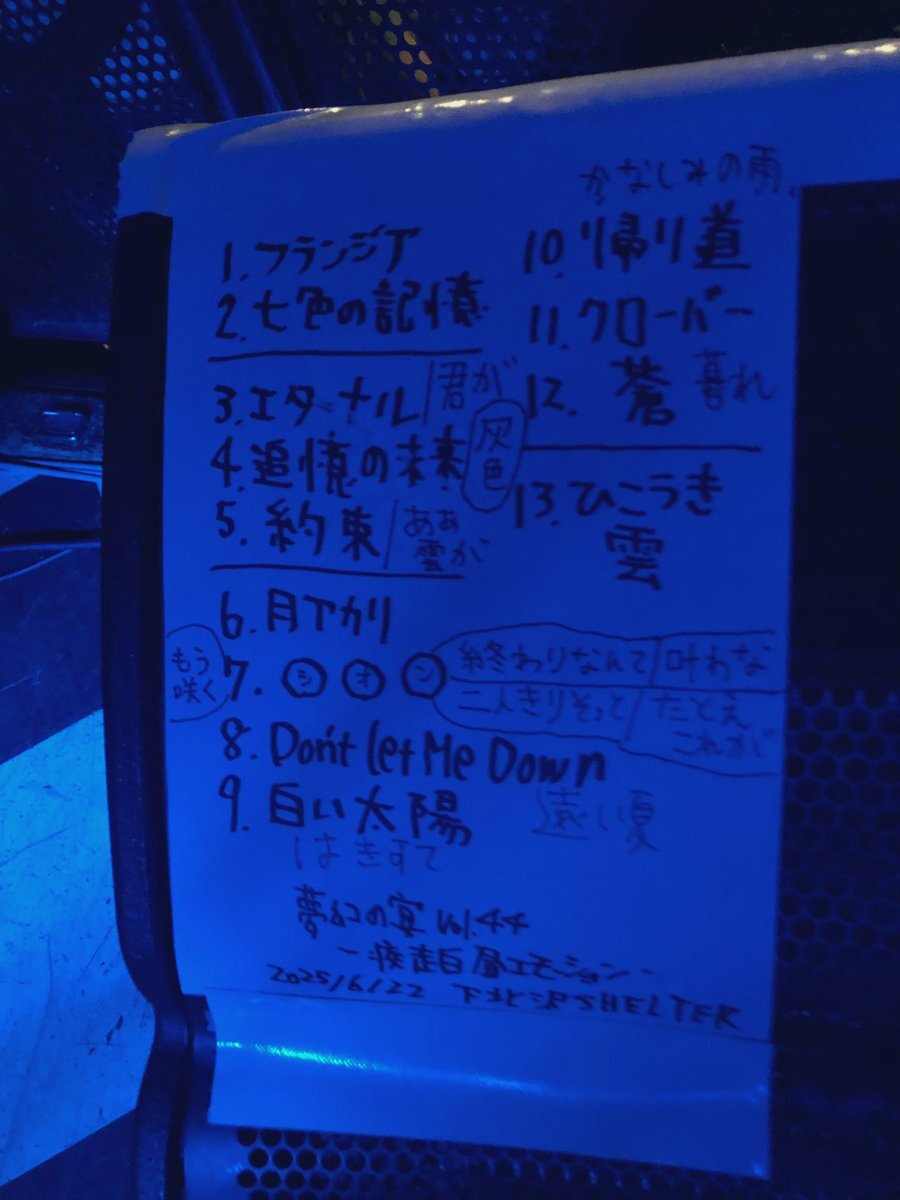 1. フランジア
2. 七色の記憶
3. エターナル/君が
4. 追憶の未来 灰色
5. 約束/ああ雲が
6. 月アカリ
もう咲く
7. シオン
終わりなんて/叶わな
二人きりそっと/たとえこれが
8. Don't Let Me Down
9. 白い太陽 遠い夏
はきすて
かなしみの雨、
10. 帰り道
11. クローバー
12. 蒼 暮れ
13. ひこうき雲
夢幻の宴 Vol.44
-疾走白昼エモーション-
2025/6/22 下北沢SHELTER